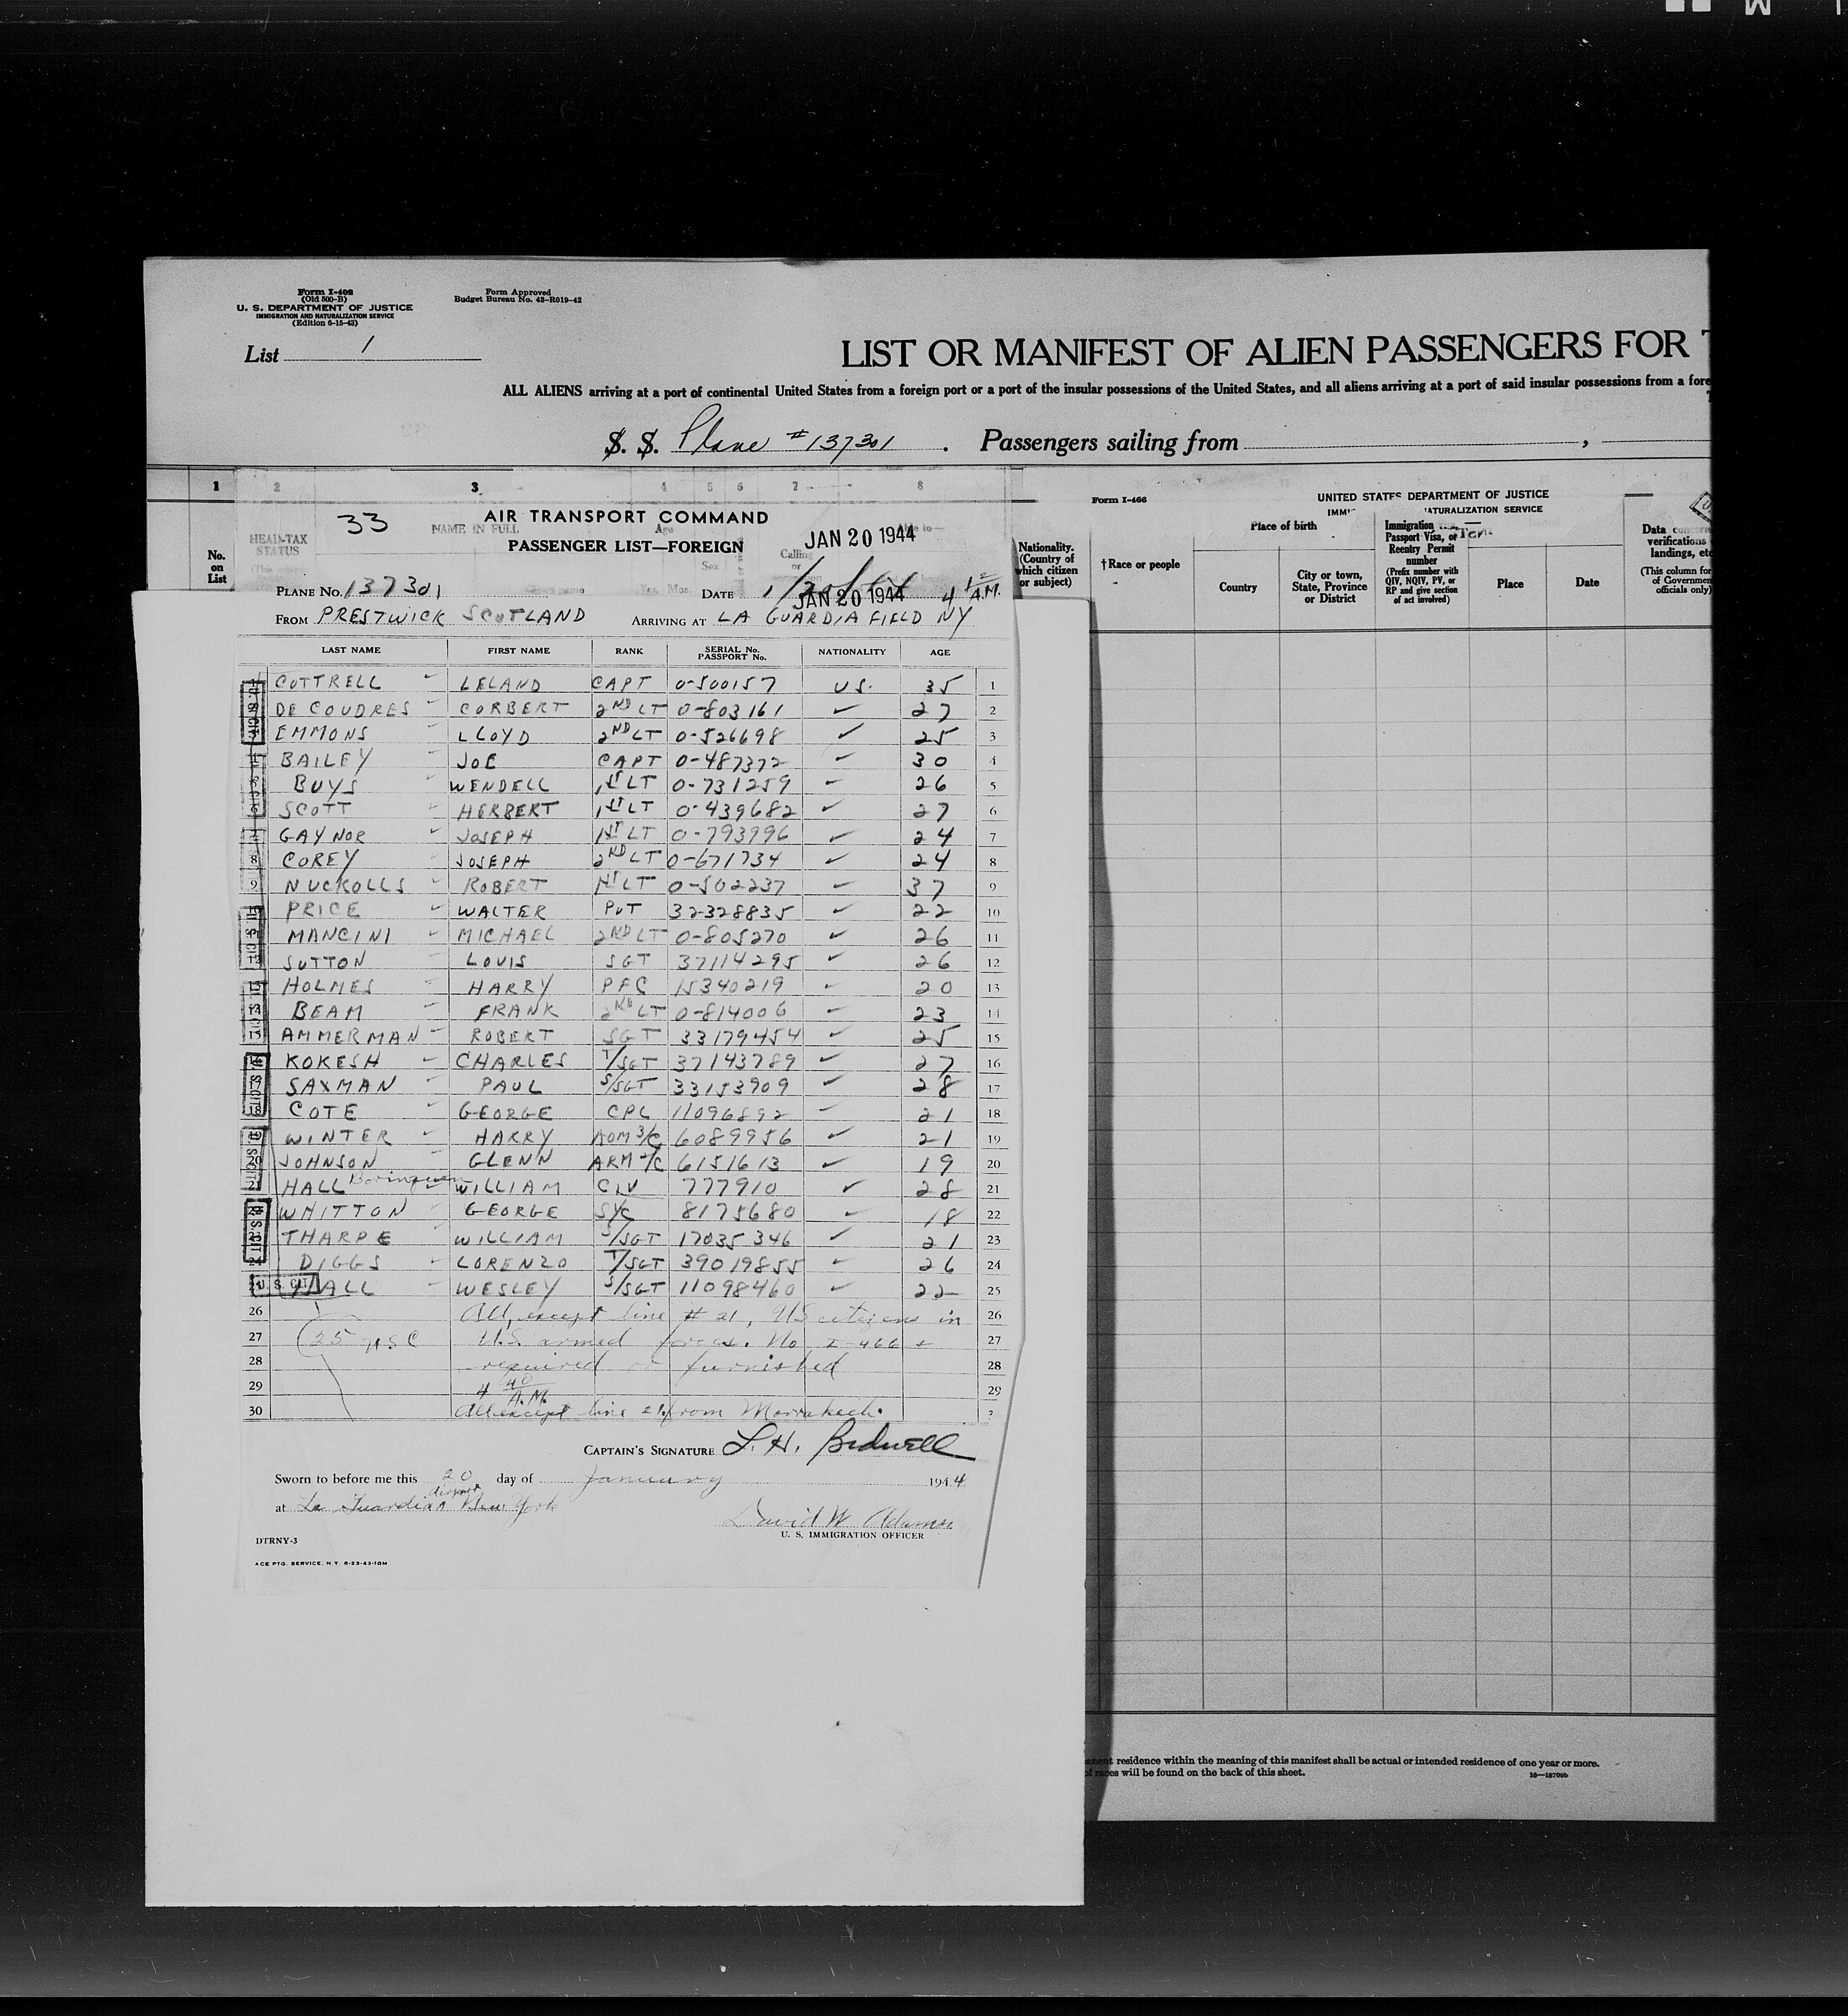 Form I-402
(Old 500-B)
U. S. DEPARTMENT OF JUSTICE
IMMIGRATION AND NATURALIZATION SERVICE
(Edition 6-15-43)
Form Approved
Budget Bureau No. 43-R019-42
List 1
LIST OR MANIFEST OF ALIEN PASSENGERS FOR
ALL ALIENS arriving at a port of continental United States from a foreign port or a port of the insular possessions of the United States, and all aliens arriving at a port of said insular possessions from a fore
S. S. Plane #137301 . Passengers sailing from ,
1 2 3 4 5 6 7 8
No. on List
HEAD-TAX STATUS
33
NAME IN FULL
Age
Sex
Calling or
AIR TRANSPORT COMMAND
PASSENGER LIST—FOREIGN
JAN 20 1944
PLANE No. 137301 DATE JAN 20 1944 4 A.M.
FROM PRESTWICK SCOTLAND ARRIVING AT LA GUARDIA FIELD NY
LAST NAME FIRST NAME RANK SERIAL No. PASSPORT No. NATIONALITY AGE
1 COTTRELL LELAND CAPT 0-500157 US. 35 1
DE COUDRES CORBERT 2ND LT 0-803161 ✓ 27 2
EMMONS LLOYD 2ND LT 0-526698 ✓ 25 3
BAILEY JOE CAPT 0-487372 ✓ 30 4
BUYS WENDELL 1ST LT 0-731259 ✓ 26 5
6 SCOTT HERBERT 1ST LT 0-439682 ✓ 27 6
GAYNOR JOSEPH 1ST LT 0-793996 ✓ 24 7
8 COREY JOSEPH 2ND LT 0-671734 ✓ 24 8
9 NUCKOLLS ROBERT 1ST LT 0-502237 ✓ 37 9
PRICE WALTER PVT 32328835 ✓ 22 10
MANCINI MICHAEL 2ND LT 0-805270 ✓ 26 11
12 SUTTON LOUIS SGT 37114295 ✓ 26 12
13 HOLMES HARRY PFC 15340219 ✓ 20 13
14 BEAM FRANK 2ND LT 0-814006 ✓ 23 14
15 AMMERMAN ROBERT SGT 33179454 ✓ 25 15
KOKESH CHARLES T/SGT 37143789 ✓ 27 16
SAXMAN PAUL S/SGT 33153909 ✓ 28 17
18 COTE GEORGE CPL 11096892 ✓ 21 18
WINTER HARRY AOM 3/C 6089956 ✓ 21 19
20 JOHNSON GLENN ARM 6151613 ✓ 19 20
21 HALL Borinquen WILLIAM CIV 777910 ✓ 28 21
WHITTON GEORGE S/C 8175680 ✓ 18 22
THARPE WILLIAM S/SGT 17035346 ✓ 21 23
24 DIGGS LORENZO T/SGT 39019855 ✓ 26 24
U. S. CIT. HALL WESLEY S/SGT 11098460 ✓ 22 25
26 All, except line # 21, US citizens in 26
27 25 USC U.S. armed forces. No I-466 27
28 required or furnished 28
29 4 40 A.M. 29
30 All except line 21 from Marrakech.
CAPTAIN'S SIGNATURE L. H. Bidwell
Sworn to before me this 20 day of January 1944
at La Guardia Airport New York
David W.
U. S. IMMIGRATION OFFICER
DTRNY-3
ACE PTG. SERVICE, N.Y. 6-23-43-10M
Form I-466
UNITED STATES DEPARTMENT OF JUSTICE
NATURALIZATION SERVICE
Nationality. (Country of which citizen or subject)
†Race or people
Place of birth
Country
City or town, State, Province or District
Immigration Passport Visa, or Reentry Permit number
(Prefix number with QIV, NQIV, PV, or RP and give section of act involved)
Place
Date
Data
verifications
landings, etc
(This column for
of Government
officials only)
residence within the meaning of this manifest shall be actual or intended residence of one year or more.
of races will be found on the back of this sheet.